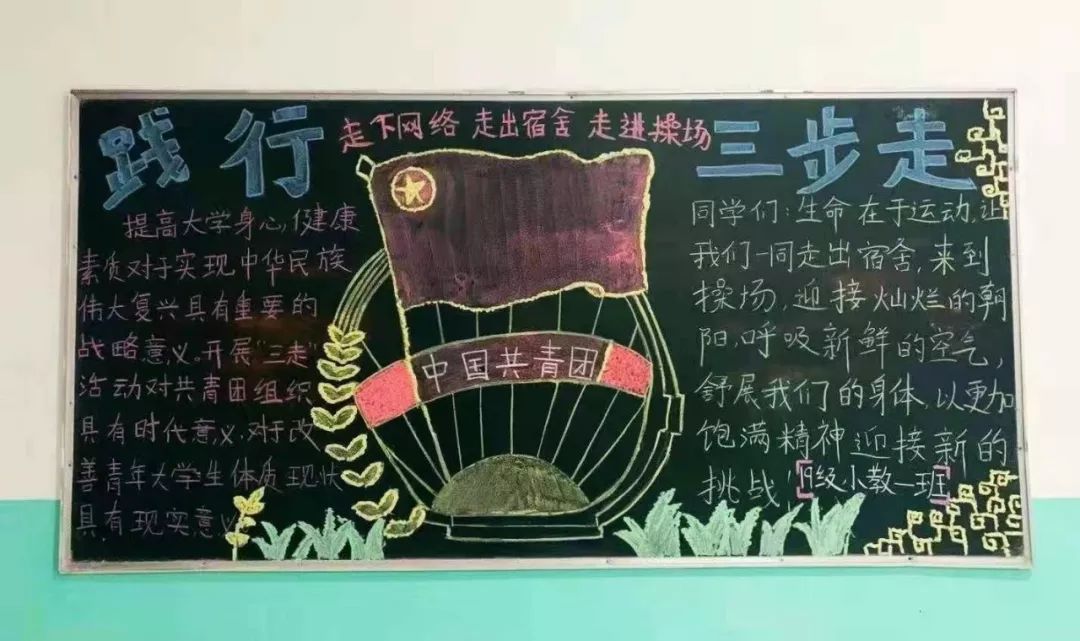 践行
走下网络 走出宿舍 走进操场
三步走
提高大学身心健康
素质对于实现中华民族
伟大复兴具有重要的
战略意义。开展"三走"
活动对共青团组织
具有时代意义,对于改
善青年大学生体质现状
具有现实意义
中国共青团
同学们:生命在于运动,让
我们一同走出宿舍,来到
操场,迎接灿烂的朝
阳,呼吸新鲜的空气,
舒展我们的身体,以更加
饱满精神迎接新的
挑战
19级小教一班